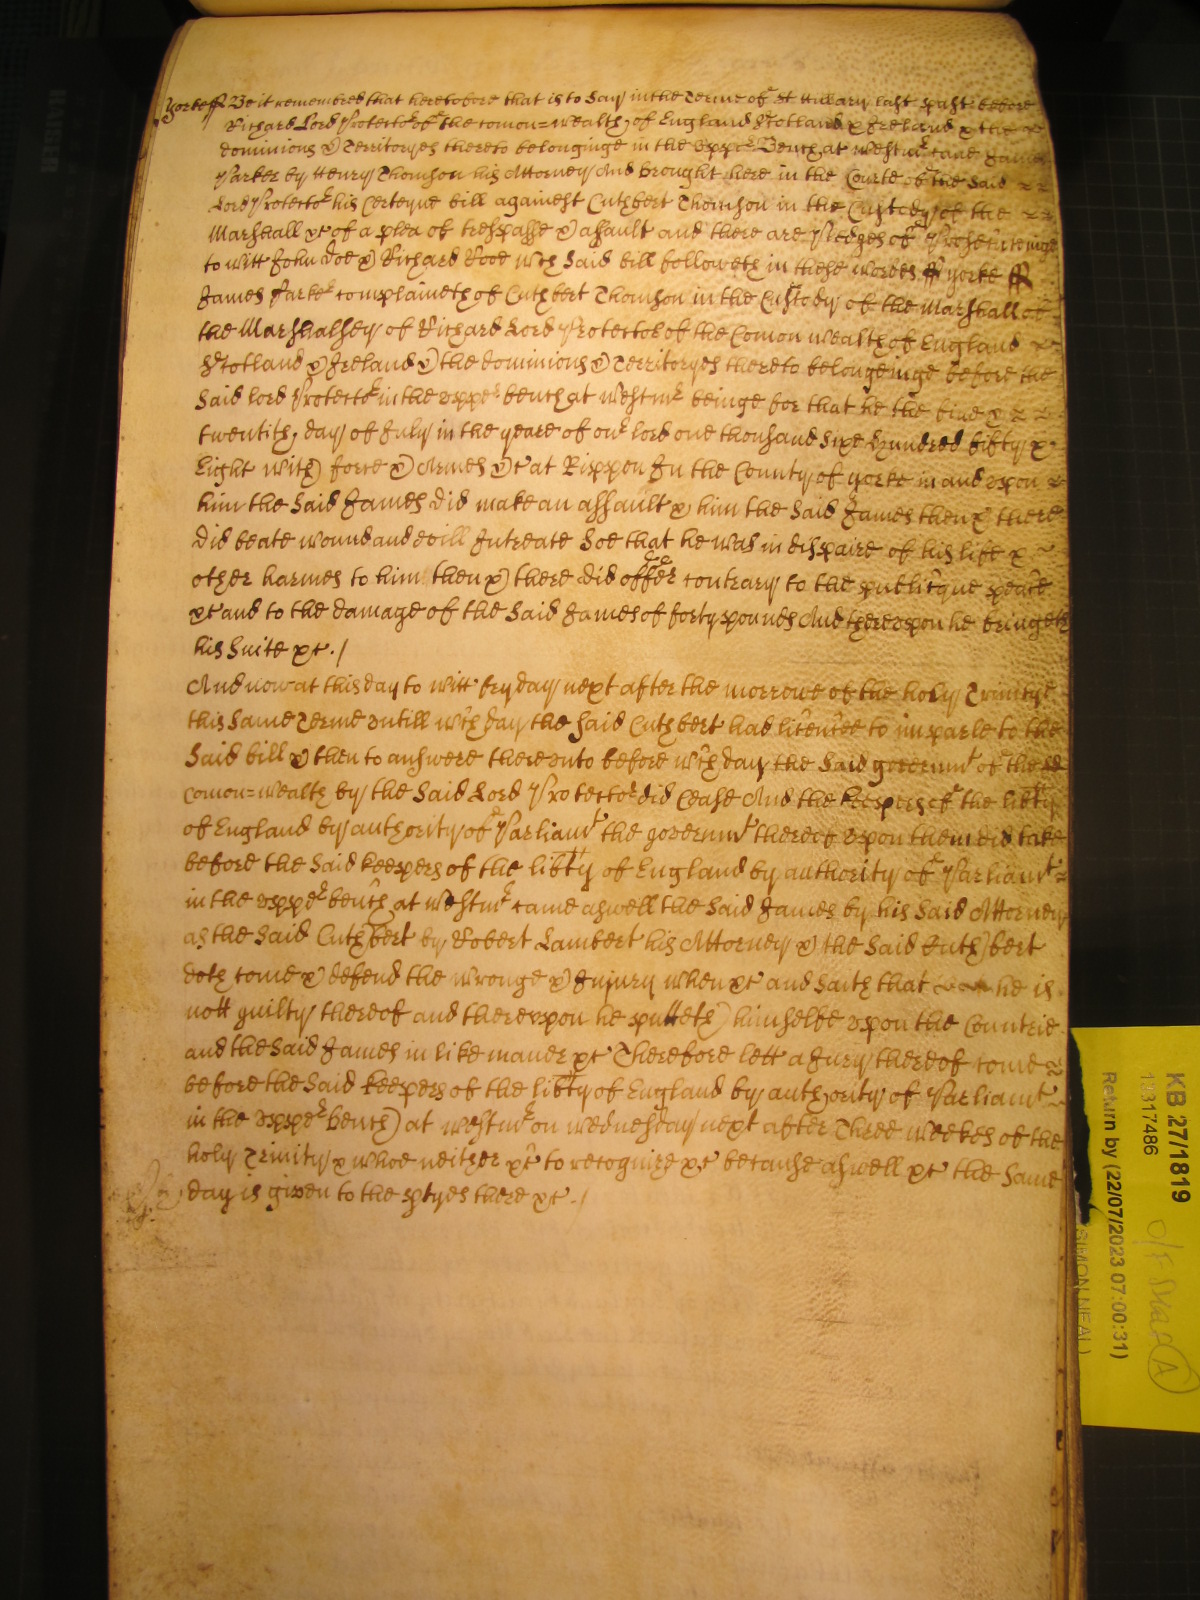 yorke ss Be it remembred that heretofore that is to Say in the Terme of St Hillary last past before
Richard Lord Protector of the comon=wealth of England Scotland & Ireland & the
dominions & Territoryes thereto belonginge in the upper Bench at Westmr came James
Parker by Henry Thomson his Attorney And brought here in the Courte of the Said
Lord Protector his Certeyne bill against Cuthbert Thomson in the Custody of the
Marshall &c of a plea of trespasse & assault and there are Pledges of Prosecuteinge
to witt John Doe & Richard Rooe wch Said bill followeth in these wordes ss yorke ss
James Parker complaineth of Cuthbert Thomson in the Custody of the Marshall of
the Marshalsey of Richard Lord Protector of the Comon wealth of England
Scotland & Ireland & the dominions & Territoryes thereto belongeinge before the
Said lord Protector in the upper bench at Westmr beinge for that he the five &
twentith day of July in the yeare of our lord one thousand Sixe hundred fifty &
Eight with force & Armes &c at Rippon In the County of yorke in and upon
him the Said James did make an assault & him the Said James then & there
did beate wound and evill Intreate Soe that he was in dispaire of his life &
other harmes to him then & there did offer contrary to the publicque peace
&c and to the damage of the Said James of forty pounes And thereupon he bringeth
his Suite &c ./
And now at this day to witt fryday next after the morrowe of the holy Trinitye
this Same Terme untill wch day the Said Cuthbert had licencee to imparle to the
Said bill & then to answere thereunto before wch day the Said governmt of the
comon=wealth by the Said Lord Protector did Cease And the keepers of the libty
of England by authority of Parliamt the governmt thereof upon them did take
before the Said keepers of the libty of England by authority of Parliamt
in the upper bench at Westmr came aswell the Said James by his Said Attorney
as the Said Cuthbert by Robert Lambert his Attorney & the Said Cuthbert
doth come & defend the wronge & Injury when &c and Saith that he is
nott guilty thereof and thereupon he putteth himselfe upon the Countrie
and the Said James in like maner &c Therefore lett a Jury thereof come
before the Said keepers of the libty of England by authority of Parliamt
in the upper bench at Westmr on Wednesday next after Three weekes of the
holy Trinity & whoe neither &c to recognize &c because aswell &c the Same
day is given to the ptyes there &c ./
KB 27/1819
13317486
Return by (22/07/2023 07:00:31)
SIMON NEAL)
A